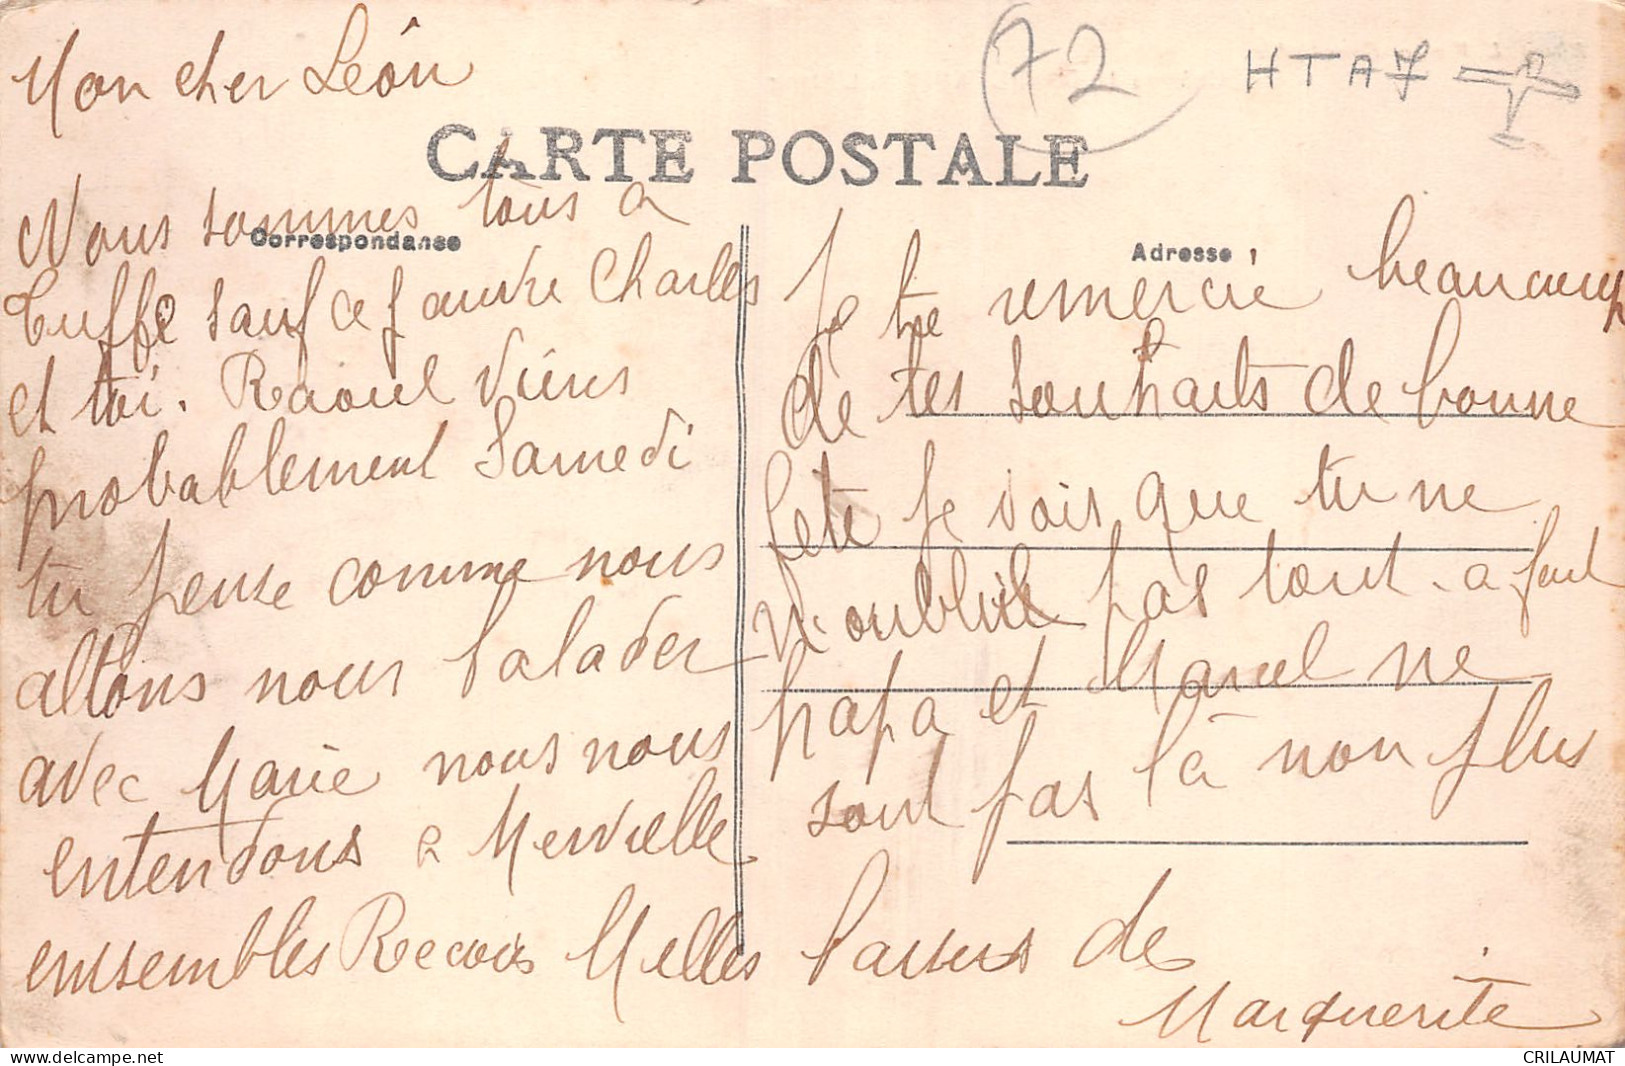 72
HTA7
Mon cher Léon
CARTE POSTALE
Correspondanse
Adresse
Nous sommes tous a
Tuffé sauf ce pauvre Charles
et toi. Raoul viens
probablement Samedi
tu pense comme nous
allons nous balader
avec Marie nous nous
entendons a Merveille
ensembles Recois Milles baisers de
Marguerite
Je te remercie beaucoup
de tes souhaits de bonne
fete je vois que tu ne
n'oublie pas tout-a fait
papa et Marcel ne
sont pas là non plus
CRILAUMAT